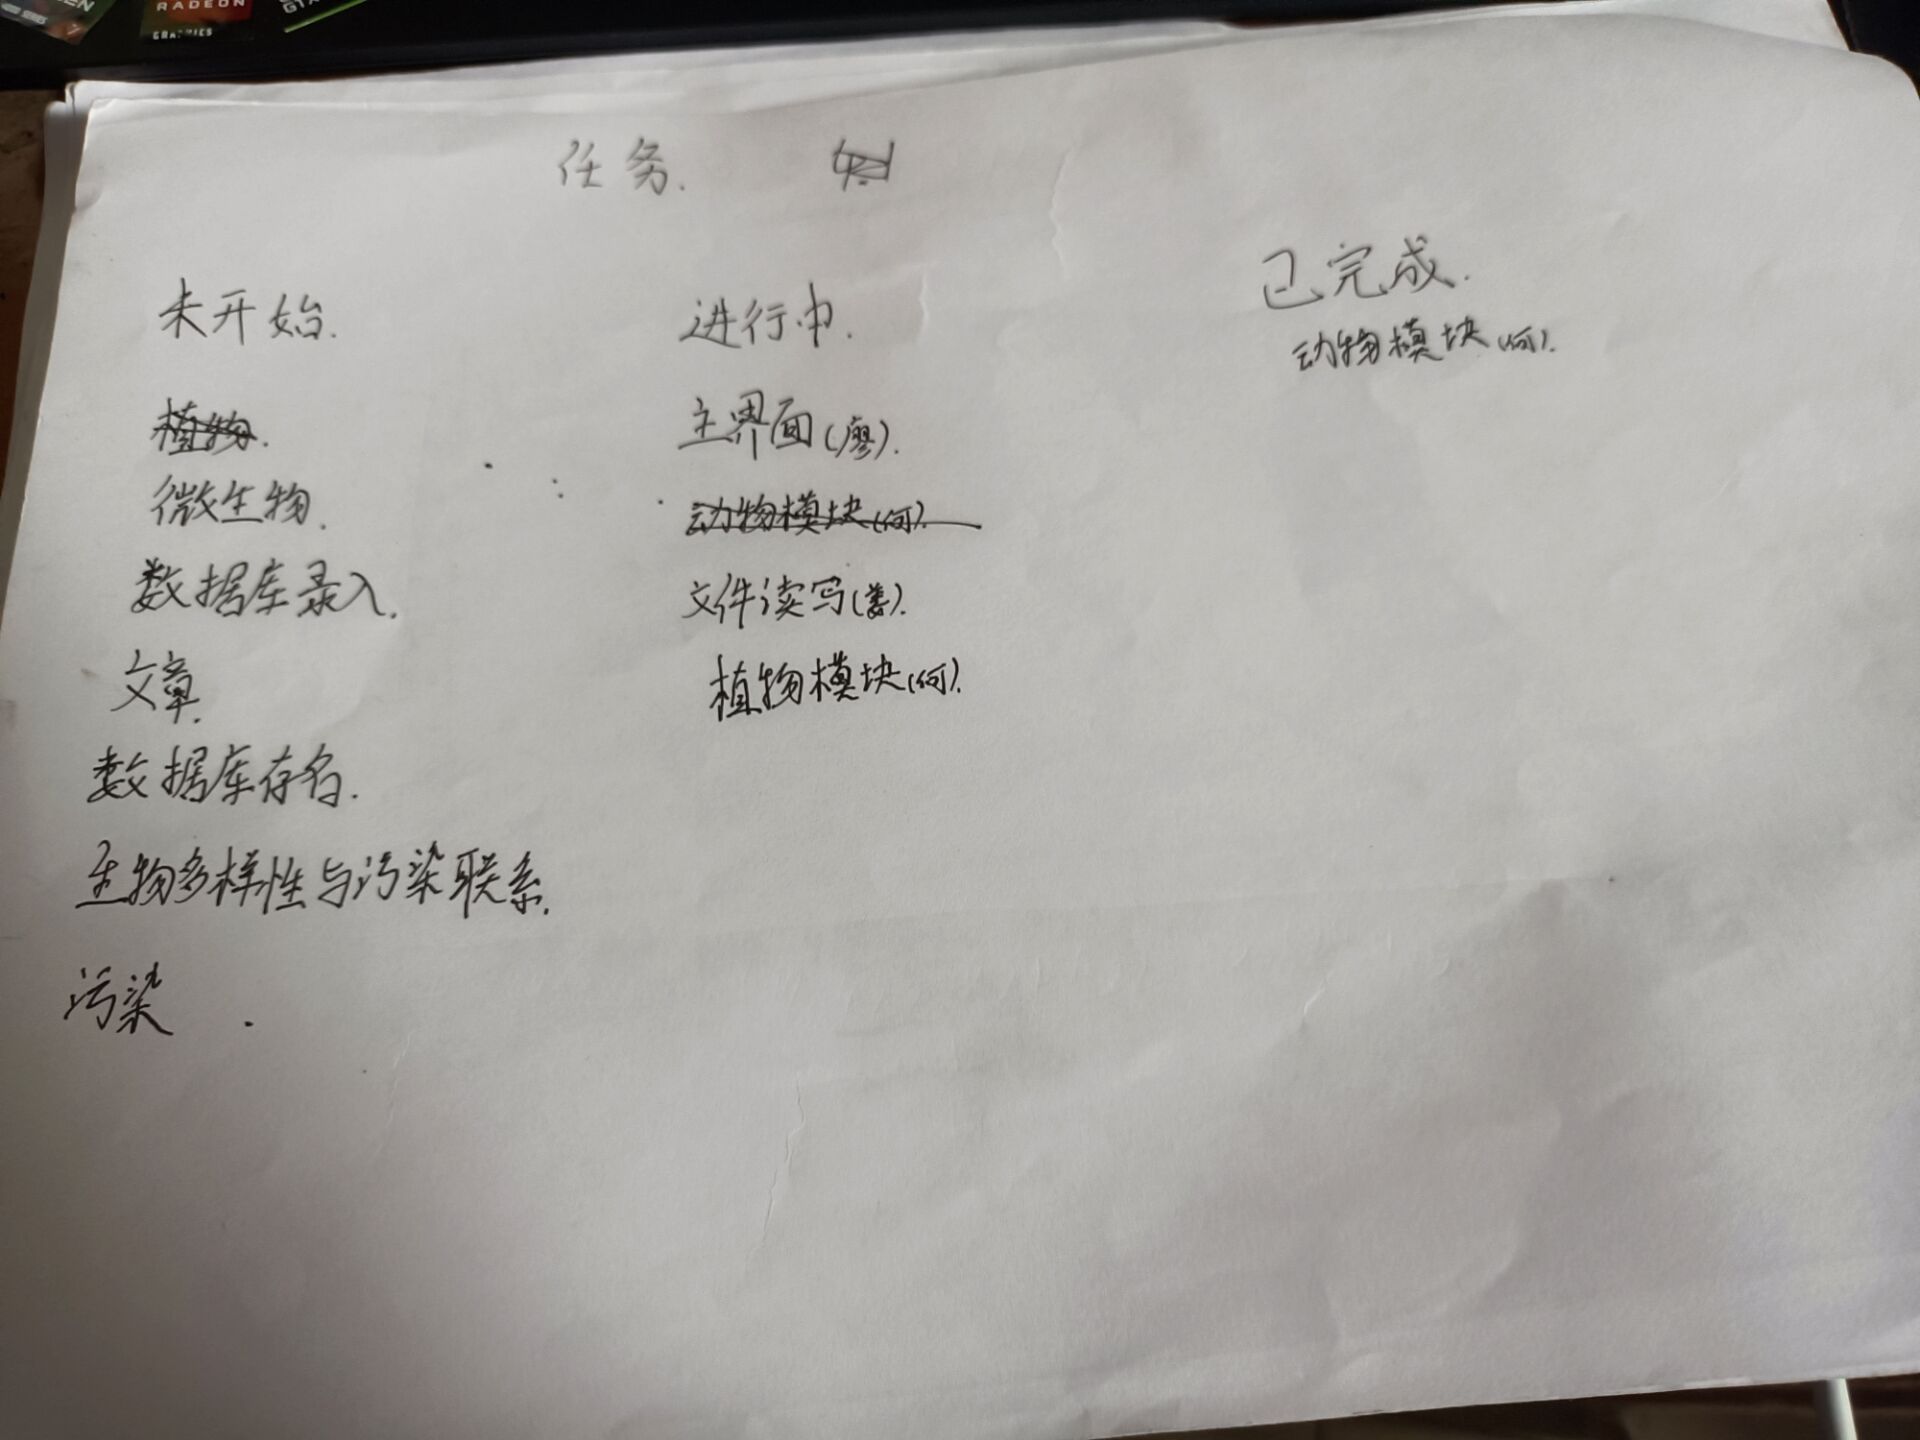 RADEON
GRAPHICS
任务.
未开始.
进行中.
已完成.
动物模块(何).
植物.
主界面(廖).
微生物.
动物模块(何).
数据库录入.
文件读写(姜).
文章.
植物模块(何).
数据库存名.
生物多样性与污染联系.
污染.